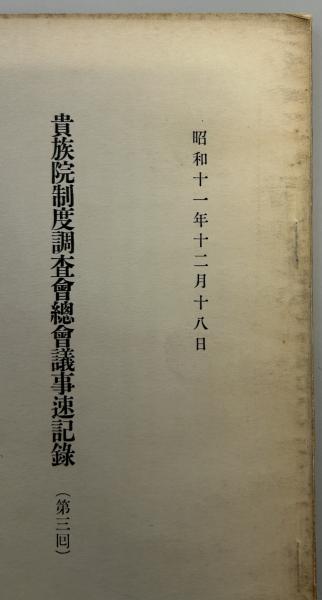 昭和十一年十二月十八日
貴族院制度調査會總會議事速記錄(第三回)